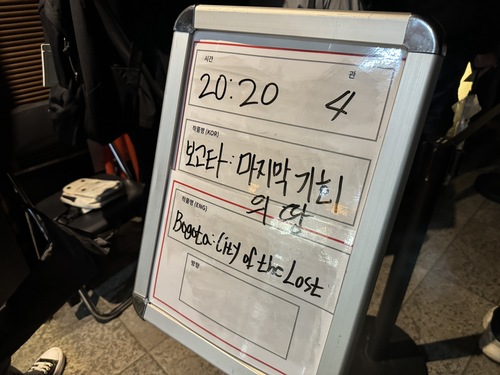 시간
관
20:20
4
작품명 (KOR)
보고타: 마지막 기회
의 땅
작품명 (ENG)
Bogota: City of the Lost